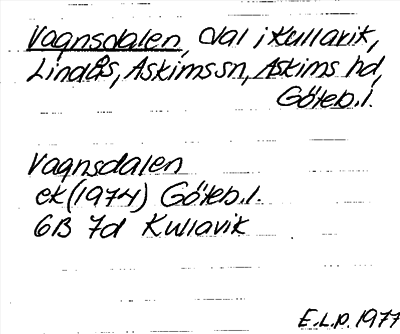 Vagnsdalen, dal i Kullavik,
Lindås, Askims sn, Askims hd,
Göteb. l.
Vagnsdalen
ek (1974) Göteb. l.
6B 7d Kullavik
E.L.p. 1977